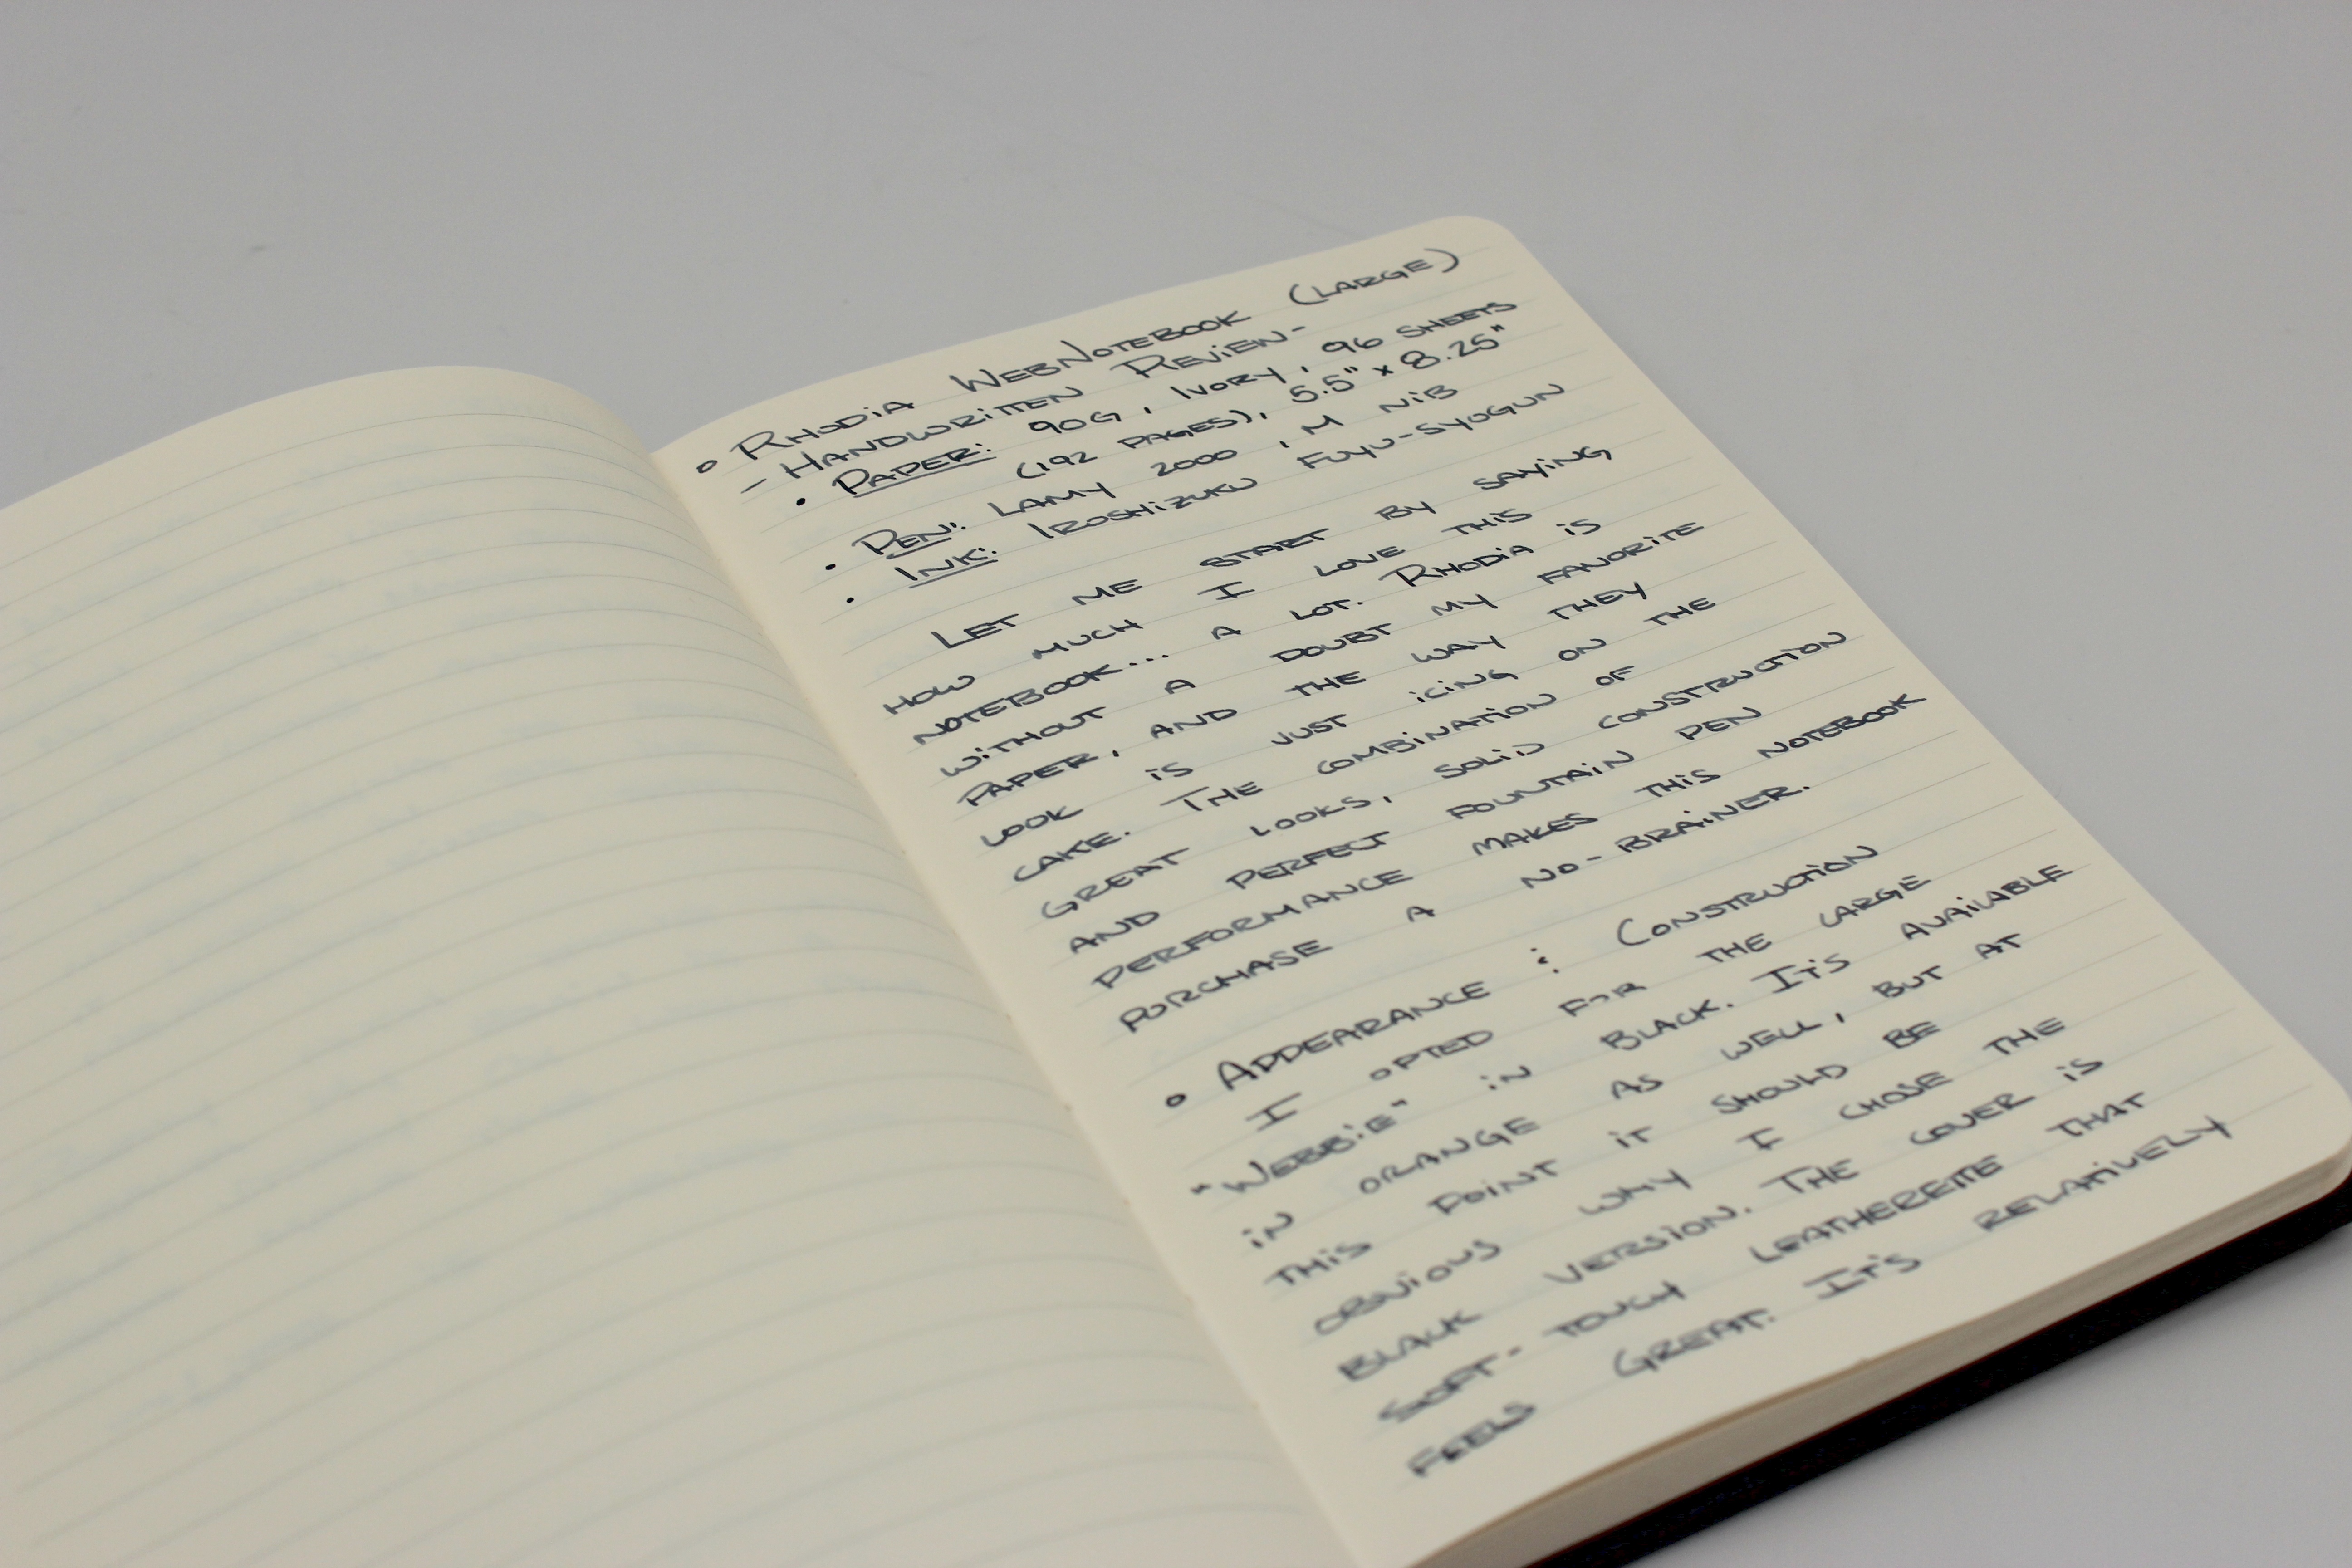 ° RHODIA WEBNOTEBOOK (LARGE)
- HANDWRITTEN REVIEW-
• PAPER: 90G, IVORY, 96 SHEETS
(192 PAGES), 5.5" x 8.25"
• PEN: LAMY 2000, M NIB
• INK: IROSHIZUKU FUYU-SYOGUN
LET ME START BY SAYING
HOW MUCH I LOVE THIS
NOTEBOOK... A LOT. RHODIA IS
WITHOUT A DOUBT MY FAVORITE
PAPER, AND THE WAY THEY
LOOK IS JUST ICING ON THE
CAKE. THE COMBINATION OF
GREAT LOOKS, SOLID CONSTRUCTION
AND PERFECT FOUNTAIN PEN
PERFORMANCE MAKES THIS NOTEBOOK
PURCHASE A NO-BRAINER.
° APPEARANCE & CONSTRUCTION
I OPTED FOR THE LARGE
"WEBBIE" IN BLACK. IT'S AVAILABLE
IN ORANGE AS WELL, BUT AT
THIS POINT IT SHOULD BE
OBVIOUS WHY I CHOSE THE
BLACK VERSION. THE COVER IS
SOFT-TOUCH LEATHERETTE THAT
FEELS GREAT. IT'S RELATIVELY